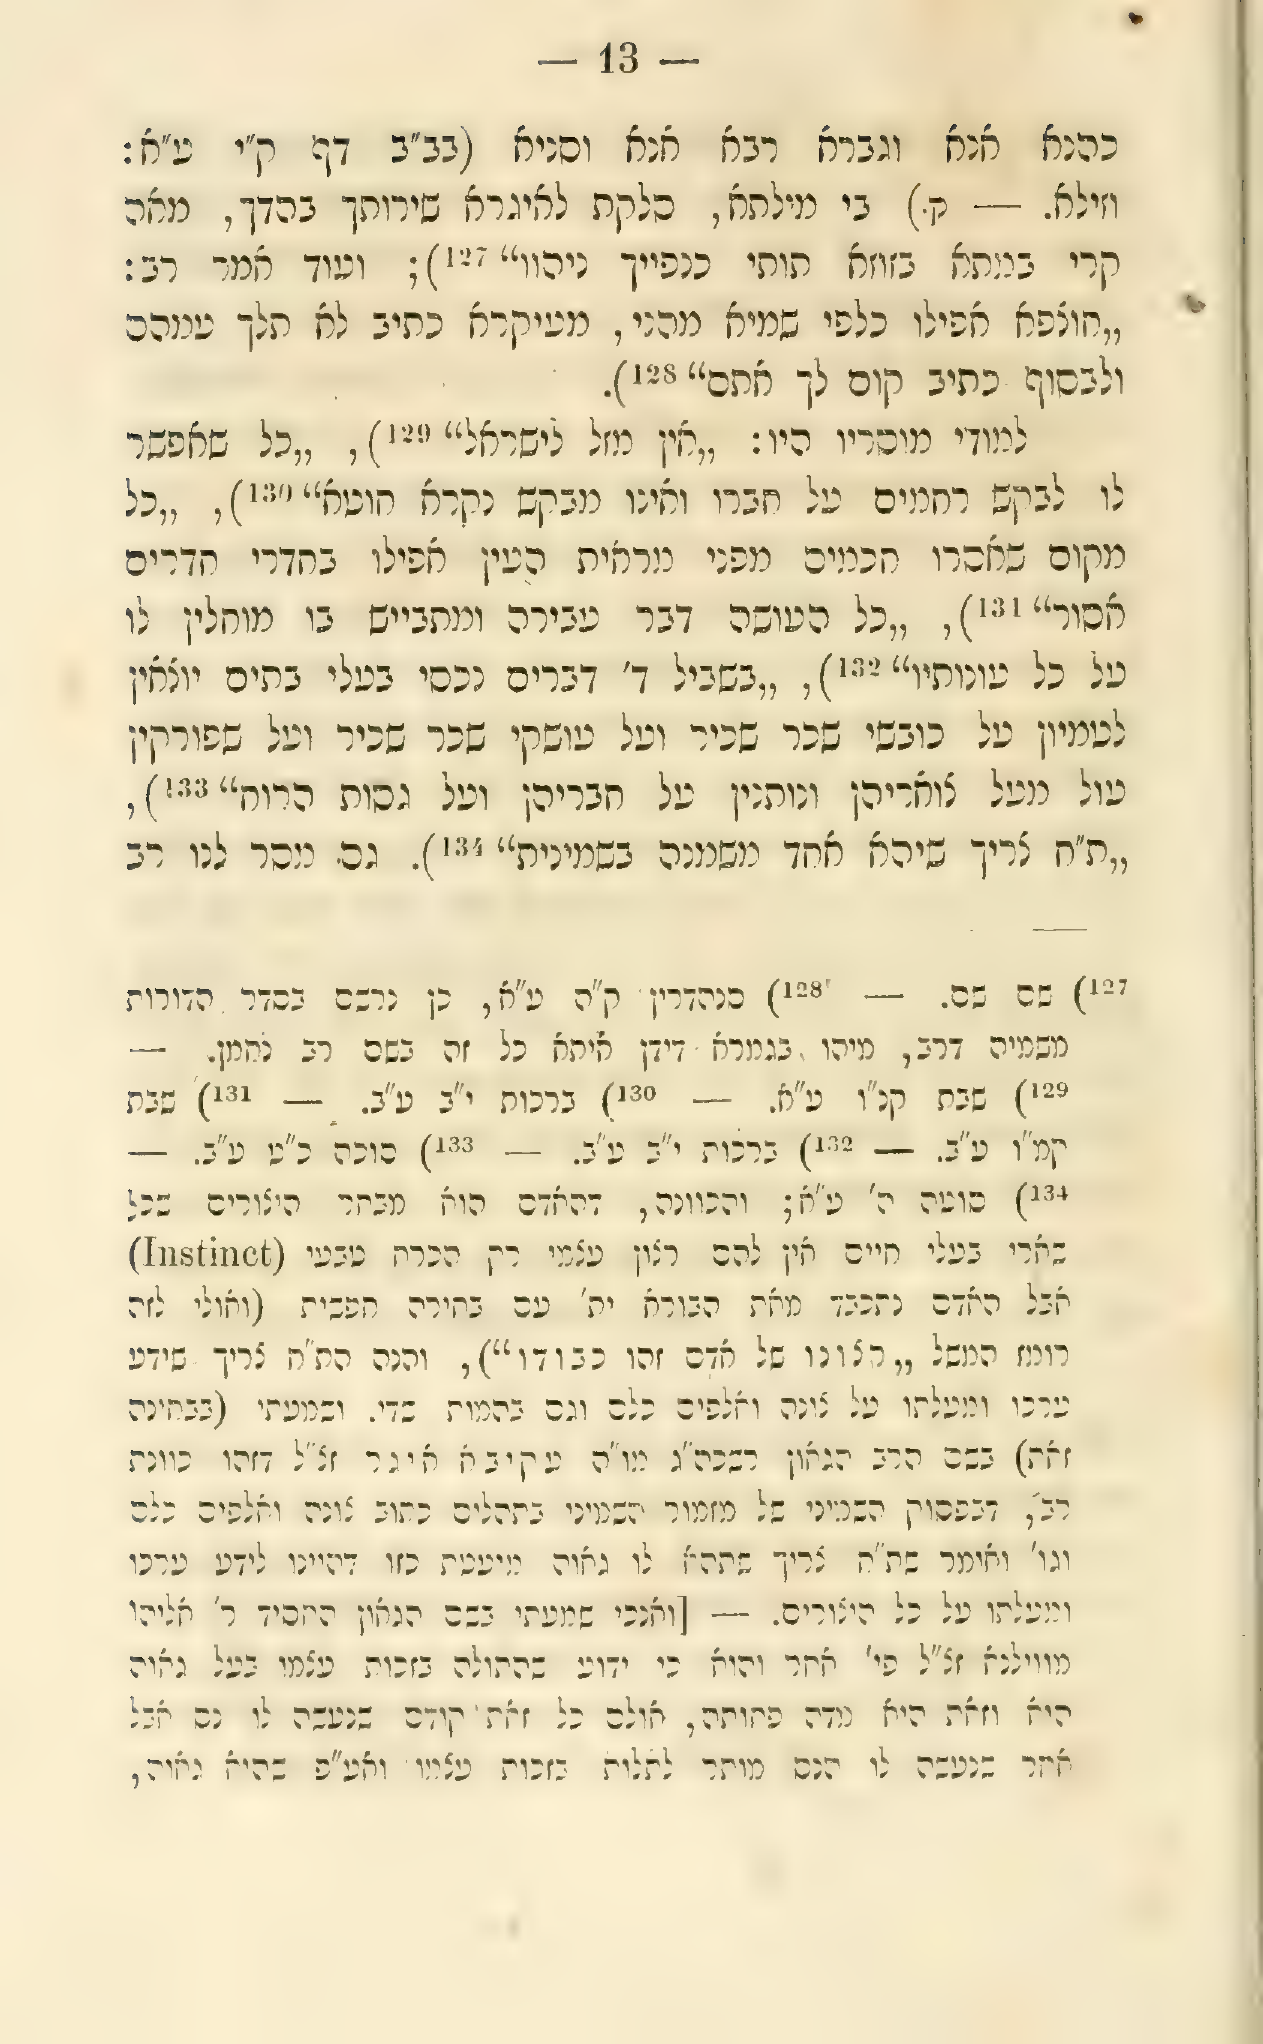 — 13 —
כהנא אנא וגברא רבא אנא וסניא (בב״ב דף ק״י ע״א:
וזילא. — ק.) בי מילתא, סלקת לאיגרא שירותך בהדך, מאה
קרי במתא בזוזא תותי כנפייך ניהוו“ 127); ועוד אמר רב:
„חוצפא אפילו כלפי שמיא מהני, מעיקרא כתיב לא תלך עמהם
ולבסוף כתיב קום לך אתם“ 128).
למודי מוסריו היו: „אין מזל לישראל“ 129), „כל שאפשר
לו לבקש רחמים על חברו ואינו מבקש נקרא חוטא“ 130), „כל
מקום שאסרו חכמים מפני מראית העין אפילו בחדרי חדרים
אסור“ 131), „כל העושה דבר עבירה ומתבייש בו מוחלין לו
על כל עונותיו“ 132), „בשביל ד׳ דברים נכסי בעלי בתים יוצאין
לטמיון על כובשי שכר שכיר ועל עושקי שכר שכיר ועל שפורקין
עול מעל צואריהן ונותנין על חבריהן ועל גסות הרוח“ 133),
„ת״ח צריך שיהא אחד משמנה בשמינית“ 134). גם מסר לנו רב
127) שם שם. — 128) סנהדרין ק״ה ע״א, כן נרשם בסדר הדורות
משמיה דרב, מיהו בגמרא דידן איתא כל זה בשם רב נחמן. —
129) שבת קנ״ו ע״א. — 130) ברכות י״ב ע״ב. — 131) שבת
קמ״ו ע״ב. — 132) ברכות י״ב ע״ב. — 133) סוכה כ״ט ע״ב. —
134) סוטה ה׳ ע״א; והכוונה, דהאדם הוא מבחר היצורים שכל
שארי בעלי חיים אין להם רצון עצמי רק הכרח טבעי (Instinct)
אבל האדם נתכבד מאת הבורא ית׳ עם בחירה חפשית (ואולי לזה
רומז המשל „רצונו של אדם זהו כבודו“), והנה הת״ח צריך שידע
ערכו ומעלתו על צונה ואלפים כלם וגם בהמות שדי. ושמעתי (בבחינה
זאת) בשם הרב הגאון רשכבה״ג מו״ה עקיבא איגר זצ״ל דזהו כוונת
רב, דבפסוק השמיני של מזמור השמיני בתהלים כתוב צונה ואלפים כלם
וגו׳ ואומר שת״ח צריך שתהא לו גאוה מיעטת כזו דהיינו לידע ערכו
ומעלתו על כל היצורים. — [ואנכי שמעתי בשם הגאון החסיד ר׳ אליהו
מווילנא זצ״ל פי׳ אחר והוא כי ידוע שהתולה בזכות עצמו בעל גאוה
היא וזאת היא מדה פחותה, אולם כל זאת קודם שנעשה לו נס אבל
אחר שנעשה לו הנס מותר לתלות בזכות עצמו ואע״פ שהיא גאוה,